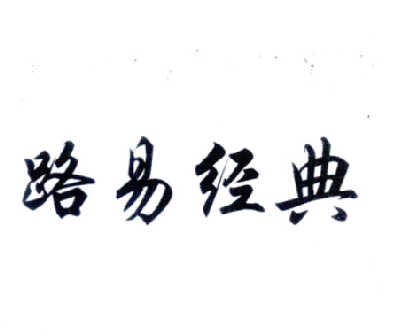 路易经典